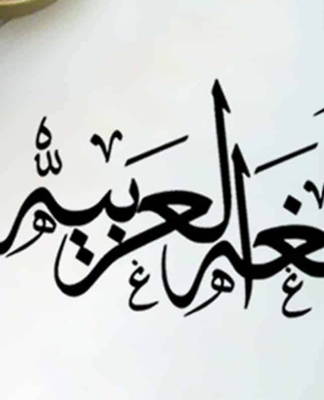 ـغة العربية